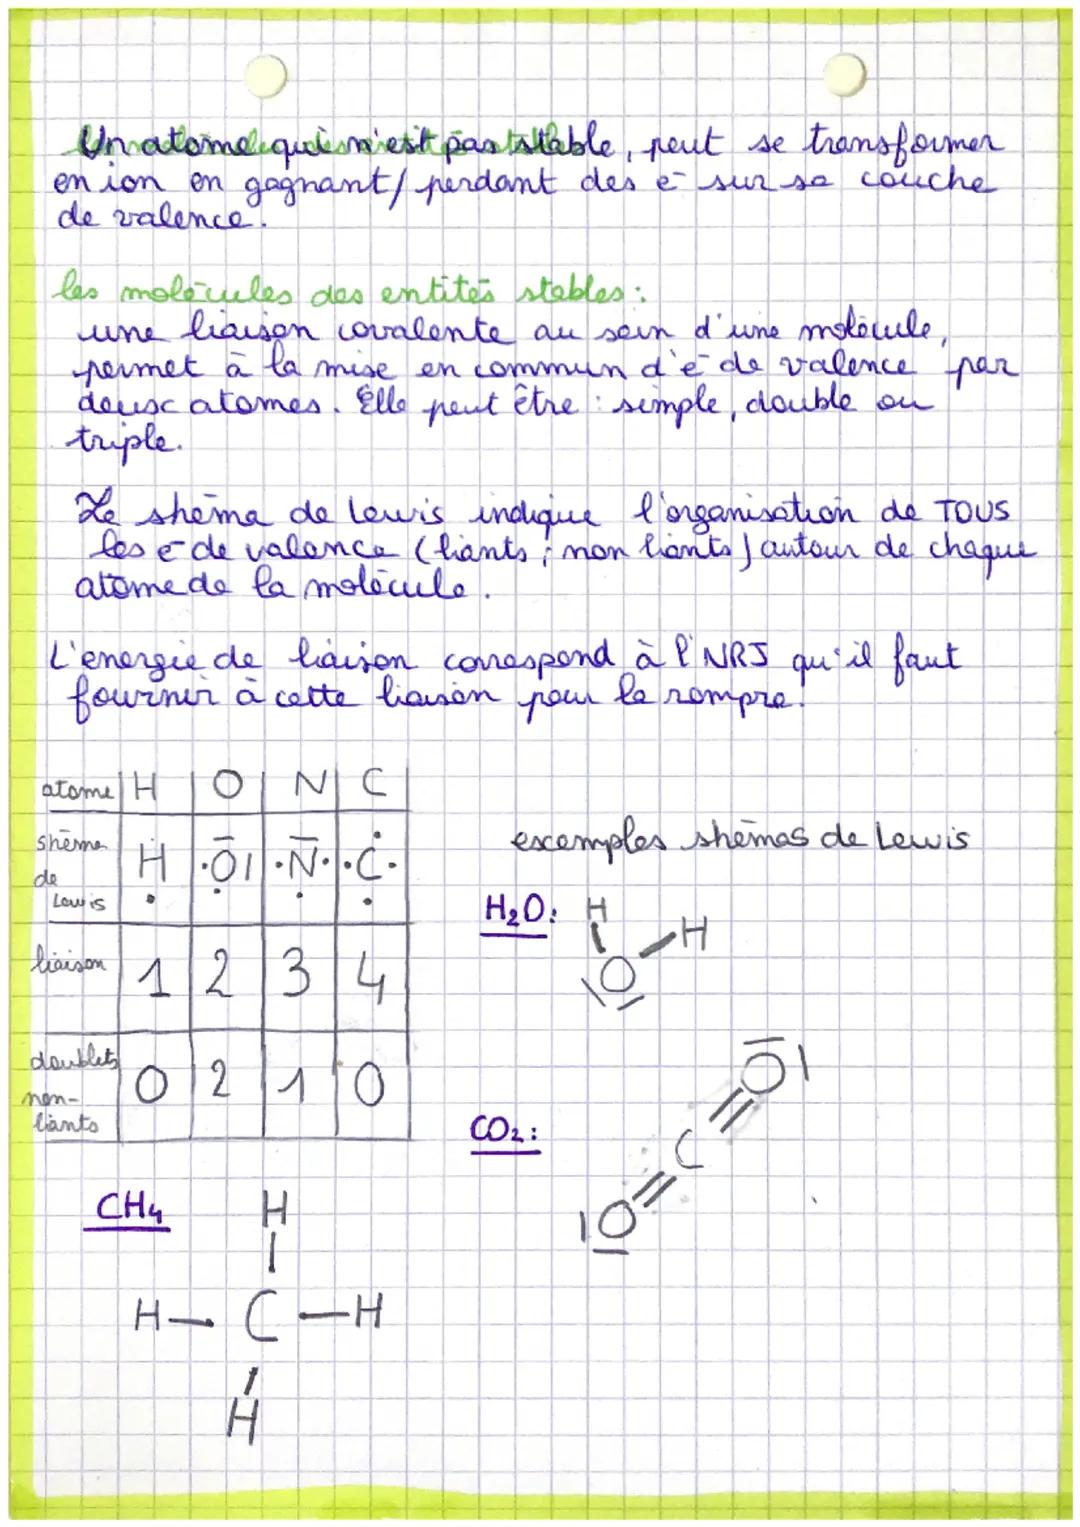 Un atome qui n'est pas stable, peut se transformer
en ion en gagnant/ perdant des e- sur sa couche
de valence.
les molécules des entités stables :
une liaison covalente au sein d'une molécule,
permet à la mise en commun d'e- de valence par
deux atomes. Elle peut être : simple, double ou
triple.
Le shéma de Lewis indique l'organisation de TOUS
les e- de valence (liants ; non liants) autour de chaque
atome de la molécule.
L'energie de liaison correspond à l'NRJ qu'il faut
fournir à cette liaison pour la rompre.
atome H O N C
shéma de Lewis H• •O̅| •N̅• •C•
liaison 1 2 3 4
doublets non-liants 0 2 1 0
exemples shémas de Lewis
H₂O:
H
H
O
CO₂:
O
C
O
CH₄
H
H — C — H
H